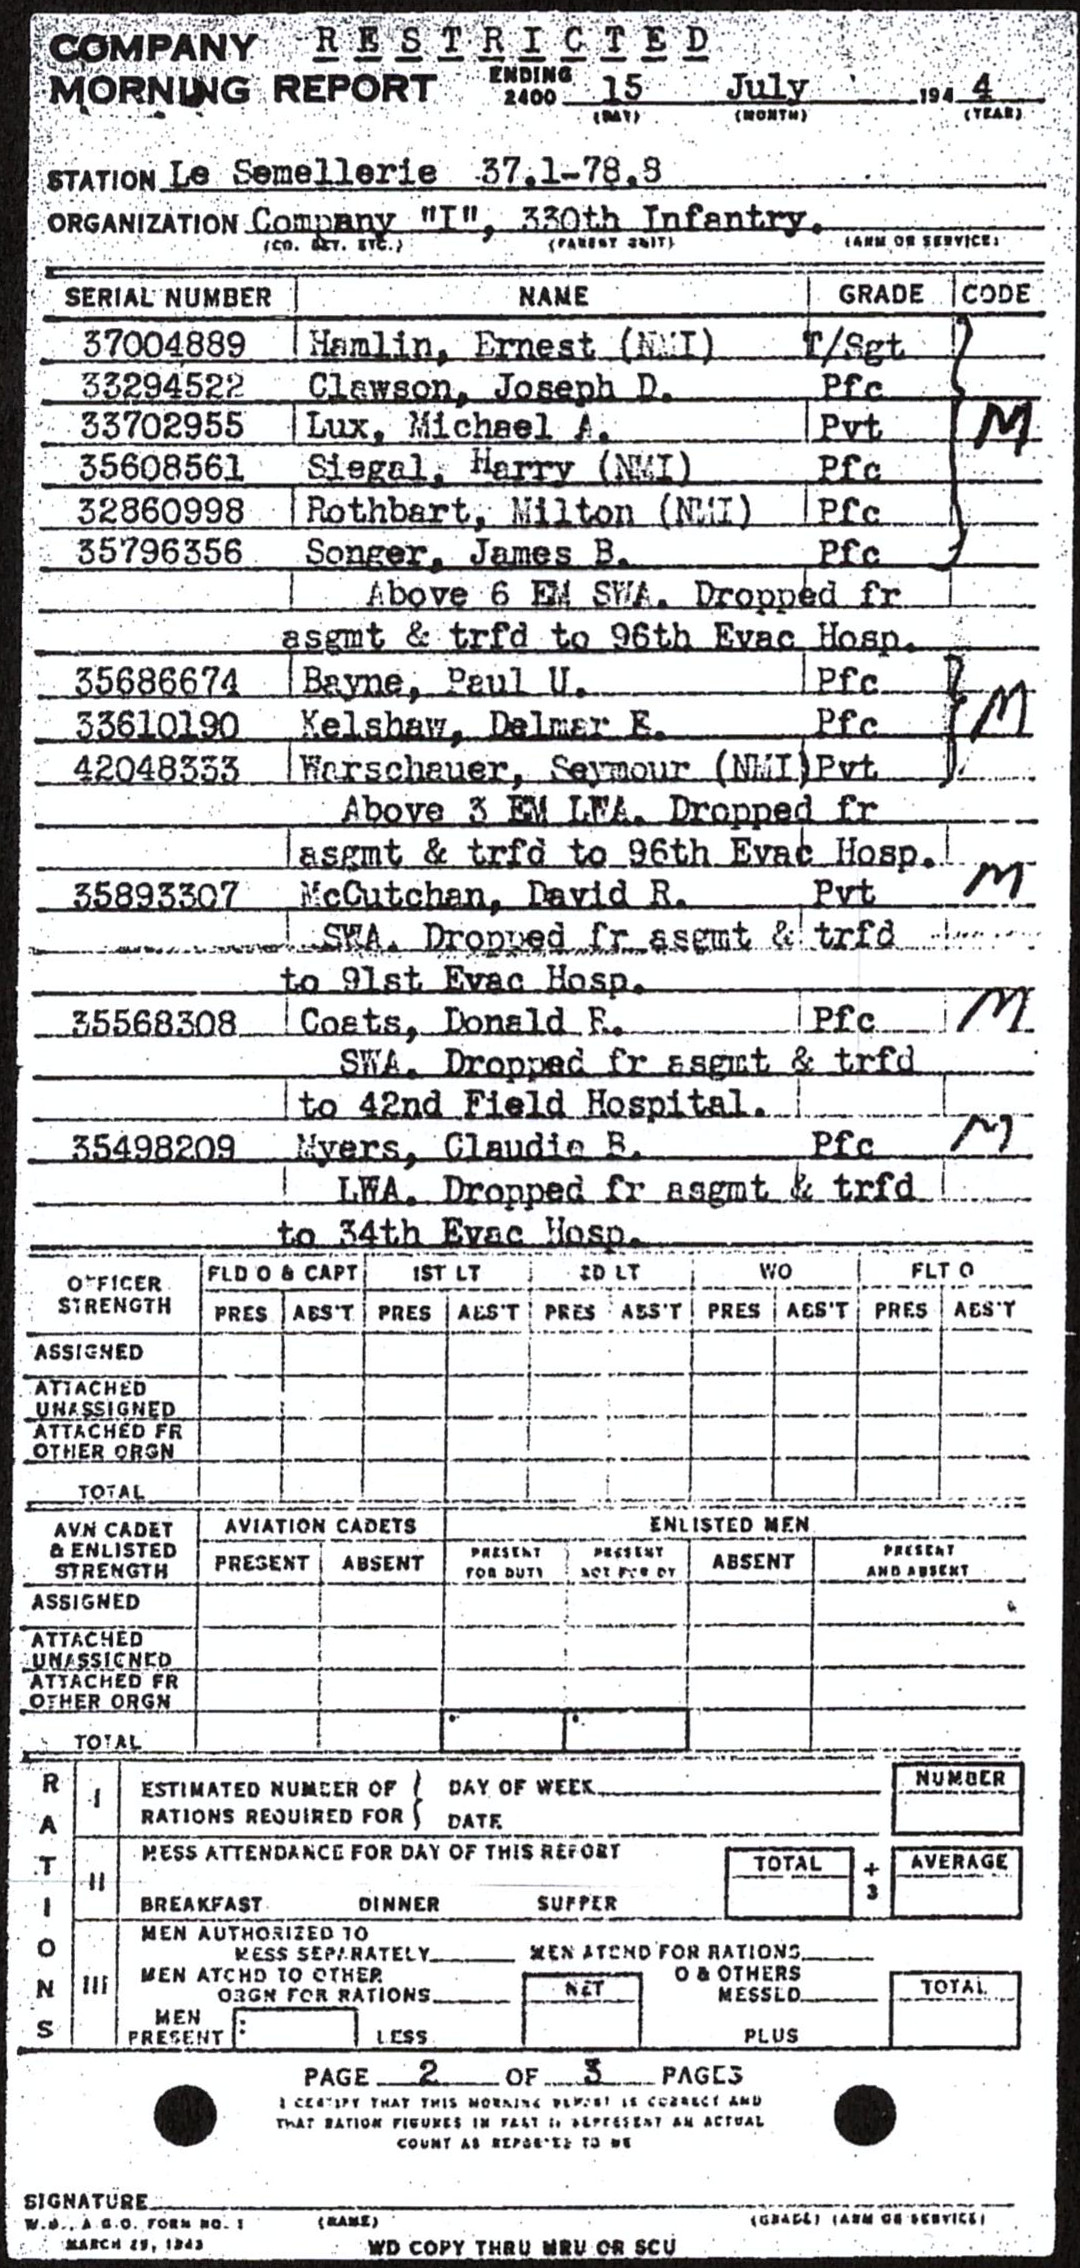 COMPANY RESTRICTED
MORNING REPORT ENDING 2400 15 July 194 4
(DAY) (MONTH) (YEAR)
STATION Le Semellerie 37.1-78.8
ORGANIZATION Company "I", 330th Infantry.
(CO. DET. ETC.) (PARENT UNIT) (ARM OR SERVICE)
SERIAL NUMBER NAME GRADE CODE
37004889 Hamlin, Ernest (NMI) T/Sgt
33294522 Clawson, Joseph D. Pfc
33702955 Lux, Michael A. Pvt M
35608561 Siegal, Harry (NMI) Pfc
32860998 Rothbart, Milton (NMI) Pfc
35796356 Songer, James B. Pfc
Above 6 EM SWA. Dropped fr
asgmt & trfd to 96th Evac Hosp.
35686674 Bayne, Paul U. Pfc
33610190 Kelshaw, Delmar E. Pfc M
42048333 Warschauer, Seymour (NMI) Pvt
Above 3 EM LWA. Dropped fr
asgmt & trfd to 96th Evac Hosp.
35893307 McCutchan, David R. Pvt M
SWA. Dropped fr asgmt & trfd
to 91st Evac Hosp.
35568308 Coats, Donald R. Pfc M
SWA. Dropped fr asgmt & trfd
to 42nd Field Hospital.
35498209 Myers, Claudie B. Pfc M
LWA. Dropped fr asgmt & trfd
to 34th Evac Hosp.
OFFICER STRENGTH FLD O & CAPT 1ST LT 2D LT WO FLT O
PRES ABS'T PRES ABS'T PRES ABS'T PRES ABS'T PRES ABS'T
ASSIGNED
ATTACHED
UNASSIGNED
ATTACHED FR
OTHER ORGN
TOTAL
AVN CADET & ENLISTED STRENGTH AVIATION CADETS ENLISTED MEN
PRESENT ABSENT PRESENT FOR DUTY PRESENT NOT FOR DY ABSENT PRESENT AND ABSENT
ASSIGNED
ATTACHED
UNASSIGNED
ATTACHED FR
OTHER ORGN
TOTAL
RATIONS
I ESTIMATED NUMBER OF DAY OF WEEK NUMBER
RATIONS REQUIRED FOR DATE
II MESS ATTENDANCE FOR DAY OF THIS REPORT TOTAL ÷ 3 AVERAGE
BREAKFAST DINNER SUPPER
III MEN AUTHORIZED TO
MESS SEPARATELY MEN ATCHD FOR RATIONS
MEN ATCHD TO OTHER O & OTHERS
ORGN FOR RATIONS NET MESSED TOTAL
MEN
PRESENT LESS PLUS
PAGE 2 OF 3 PAGES
I CERTIFY THAT THIS MORNING REPORT IS CORRECT AND
THAT RATION FIGURES IN PART II REPRESENT AN ACTUAL
COUNT AS REPORTED TO ME
SIGNATURE
W.D., A.G.O. FORM NO. 1 (NAME) (GRADE) (ARM OR SERVICE)
MARCH 29, 1943 WD COPY THRU MRU OR SCU